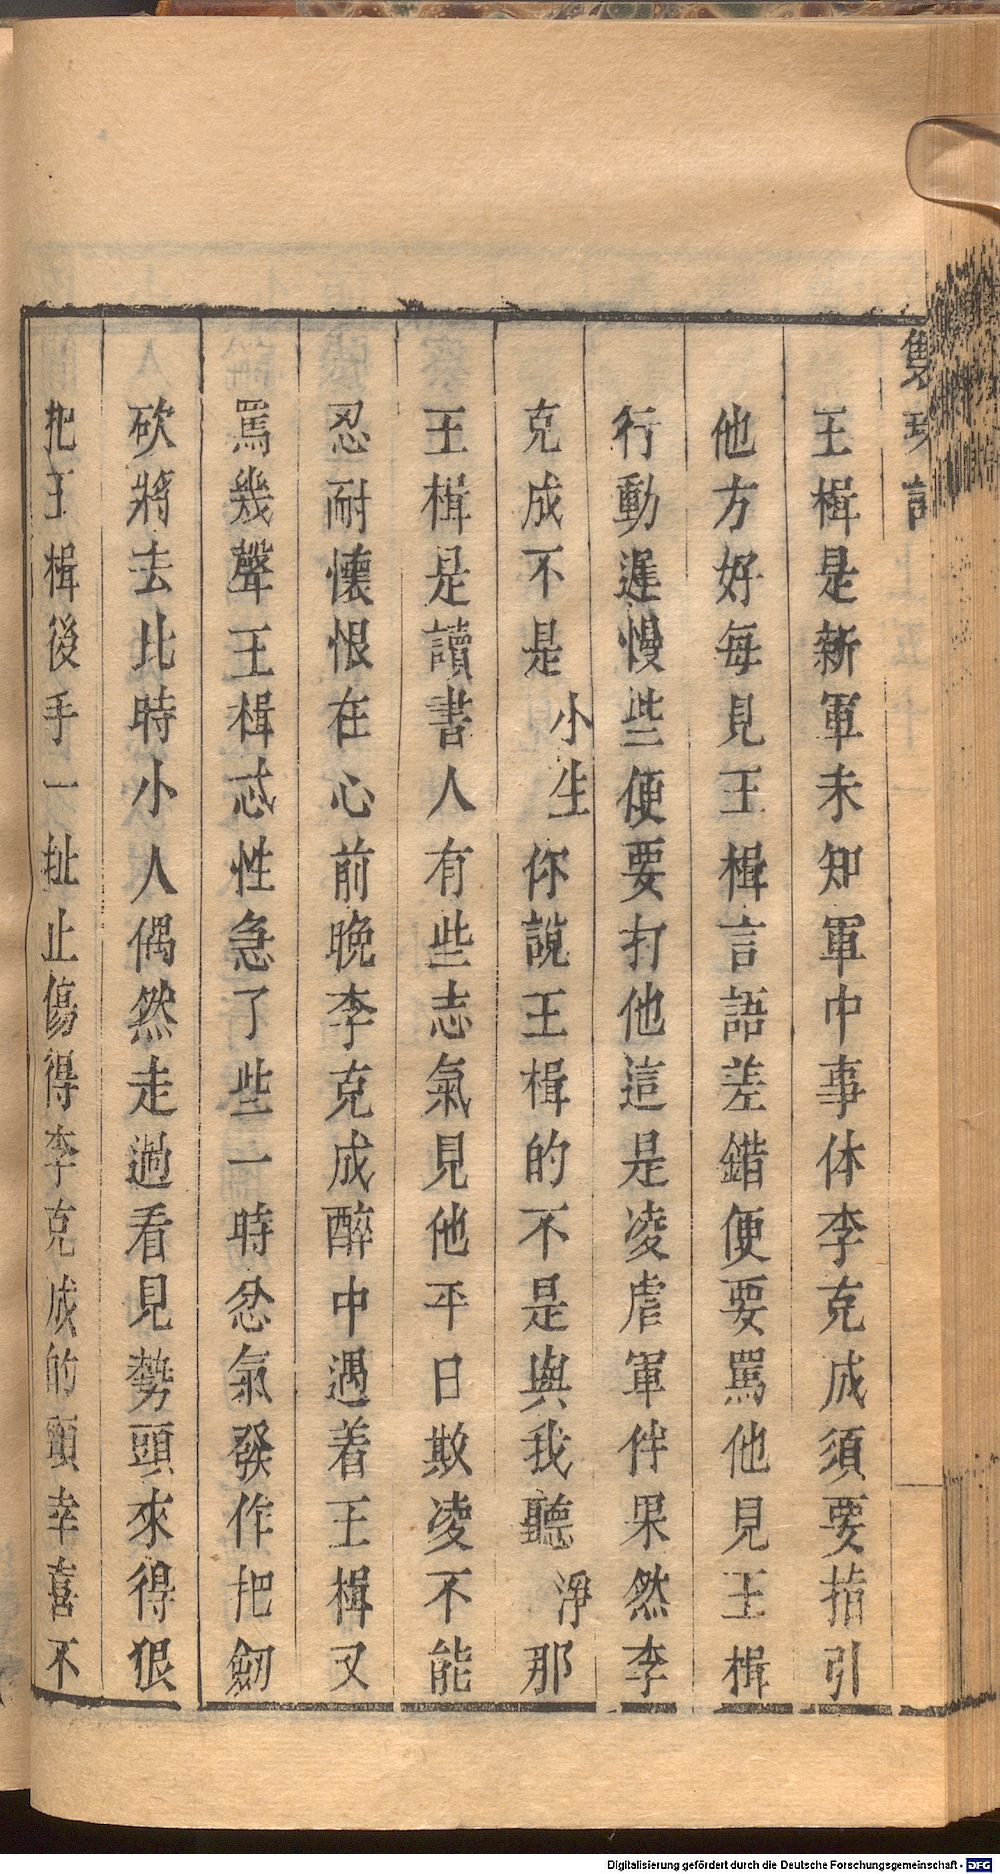 王楫是新軍未知軍中事体李克成須要指引
他方好每見王楫言語差錯便要罵他見王楫
行動遲慢些便要打他這是凌虐軍伴果然李
克成不是小生你說王楫的不是與我聽淨那
王楫是讀書人有些志氣見他平日欺凌不能
忍耐懷恨在心前晚李克成醉中遇着王楫又
罵幾聲王楫忒性急了些一時忿氣發作把劒
砍將去比時小人偶然走過看見勢頭來得狠
把王楫後手一扯止傷得李克成的頭幸喜不
Digitalisierung gefördert durch die Deutsche Forschungsgemeinschaft - DFG